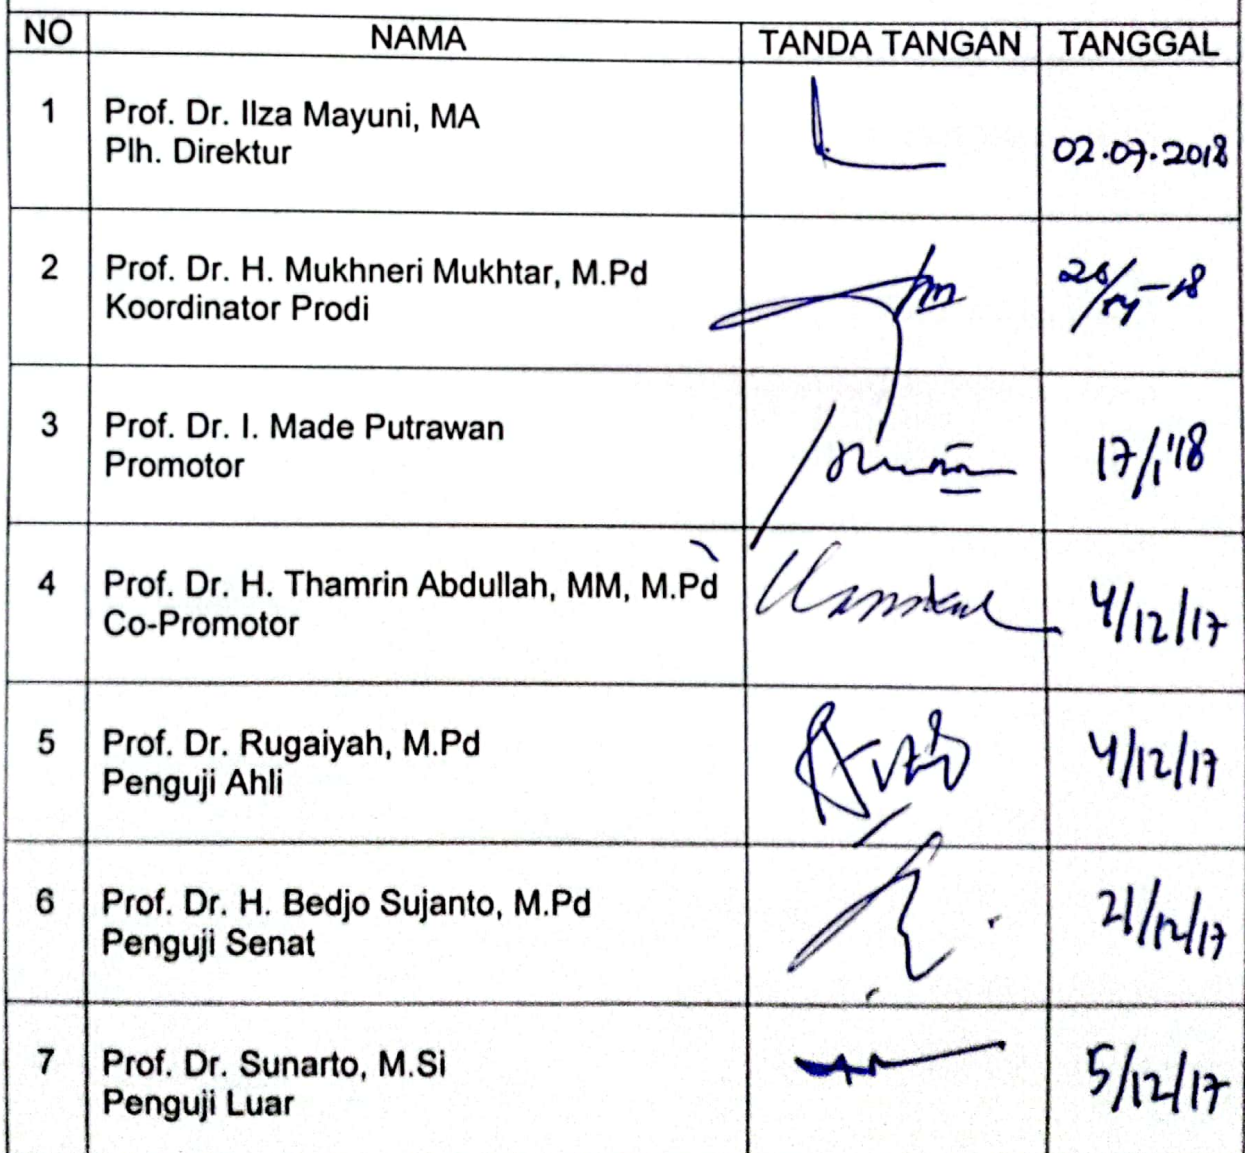 NO NAMA TANDA TANGAN TANGGAL
1 Prof. Dr. Ilza Mayuni, MA
Plh. Direktur 02.07.2018
2 Prof. Dr. H. Mukhneri Mukhtar, M.Pd
Koordinator Prodi
3 Prof. Dr. I. Made Putrawan
Promotor 17/1'18
4 Prof. Dr. H. Thamrin Abdullah, MM, M.Pd
Co-Promotor 4/12/17
5 Prof. Dr. Rugaiyah, M.Pd 4/12/17
Penguji Ahli
6 Prof. Dr. H. Bedjo Sujanto, M.Pd 21/12/17
Penguji Senat
7 Prof. Dr. Sunarto, M.Si 5/12/17
Penguji Luar